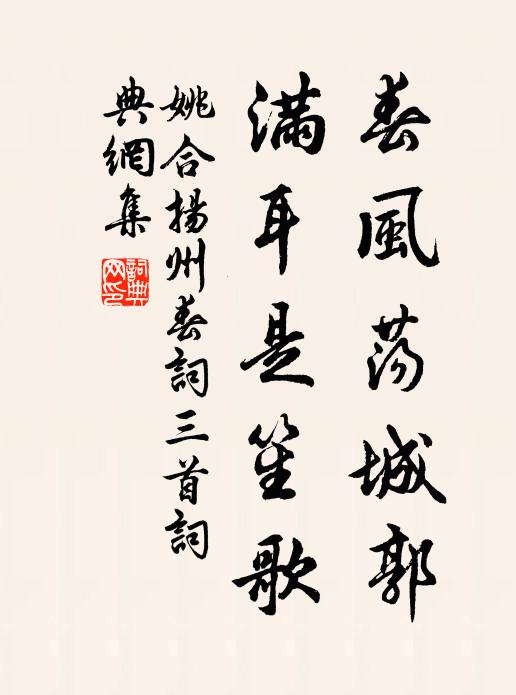 春風蕩城郭
滿耳是笙歌
姚合揚州春詞三首詞
典網集
詞典
网印